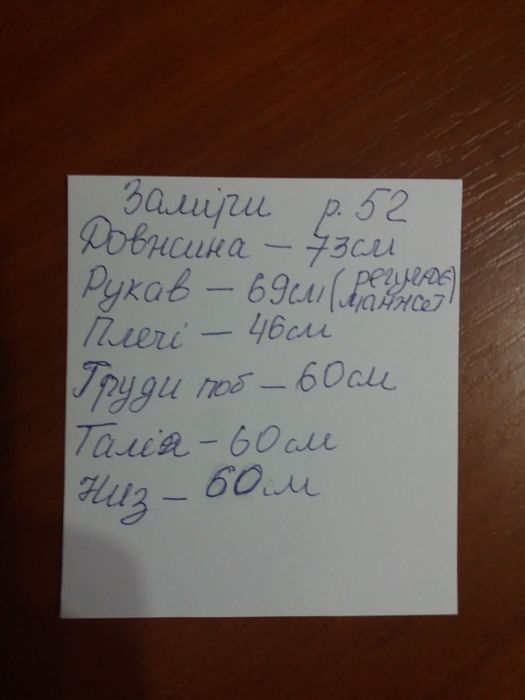 Заміри р. 52
Довжина – 73см
Рукав – 69см (регулює манжет)
Плечі – 46см
Груди поб – 60см
Талія – 60см
Низ – 60см